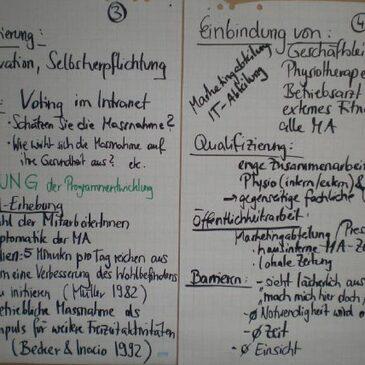 ③
ierung:
vation, Selbstverpflichtung
: Voting im Intranet
• Schätzen Sie die Massnahme?
• Wie wirkt sich die Massnahme auf
ihre Gesundheit aus? etc.
UNG der Programmentwicklung
-Erhebung
hl der MitarbeiterInnen
ptomatik der MA
ien: 5 Minuten pro Tag reichen aus
m eine Verbesserung des Wohlbefindens
u initiieren (Müller 1982)
etriebliche Massnahme als
mpuls für weitere Freizeitaktivitäten
(Becker & Inacio 1992)
④
Einbindung von:
Marketingabteilung
IT-Abteilung
Geschäftslei
Physiotherape
Betriebsarzt
externes Fitne
alle MA
Qualifizierung:
enge Zusammenarbei
Physio (intern/extern) &
→ gegenseitige fachliche
Öffentlichkeitsarbeit:
Marketingabteilung / Pres
- hausinterne MA-Ze
- lokale Zeitung
Barrieren: - sieht lächerlich aus
"mach mich hier doch
- Ø Notwendigkeit wird
- Ø Zeit
- Ø Einsicht